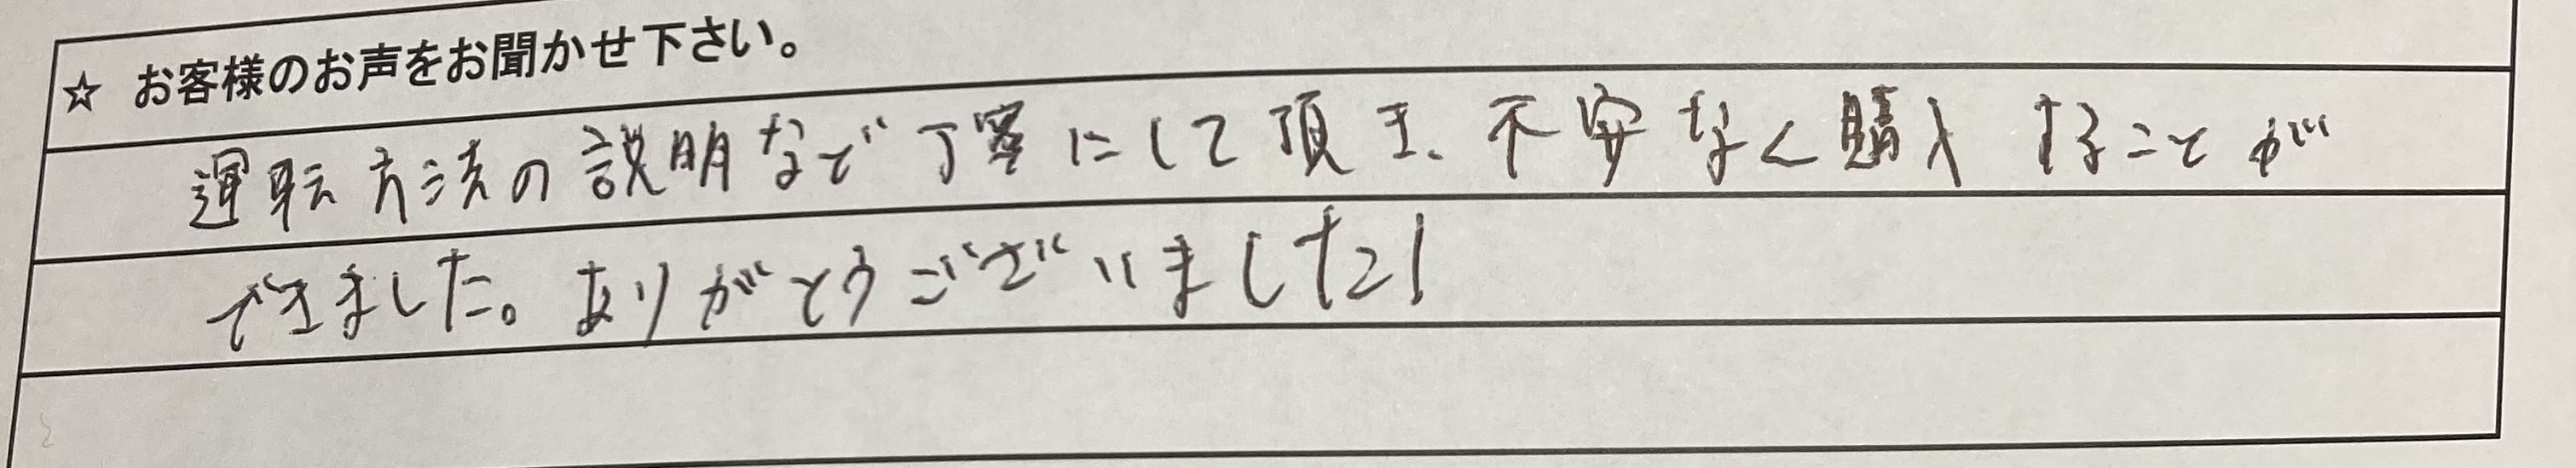 ☆ お客様のお声をお聞かせ下さい。
運転方法の説明など丁寧にして頂き、不安なく購入することが
できました。ありがとうございました!